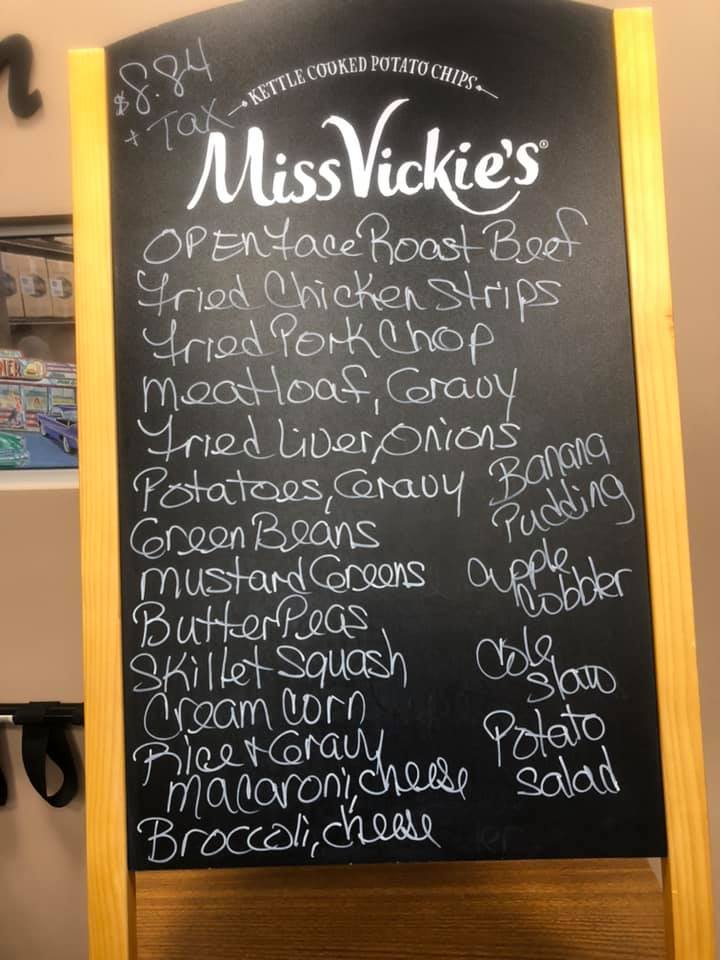 $8.84
+ Tax
KETTLE COOKED POTATO CHIPS
Miss Vickie's®
OPEN face Roast Beef
Fried Chicken Strips
Fried Pork Chop
meatloaf, Gravy
Fried Liver, onions
Potatoes, Gravy
Green Beans
mustard Greens
Butter Peas
Skillet Squash
Cream corn
Rice & Gravy
macaroni, cheese
Broccoli, cheese
Banana
Pudding
apple
Cobbler
Cole
Slaw
Potato
Salad